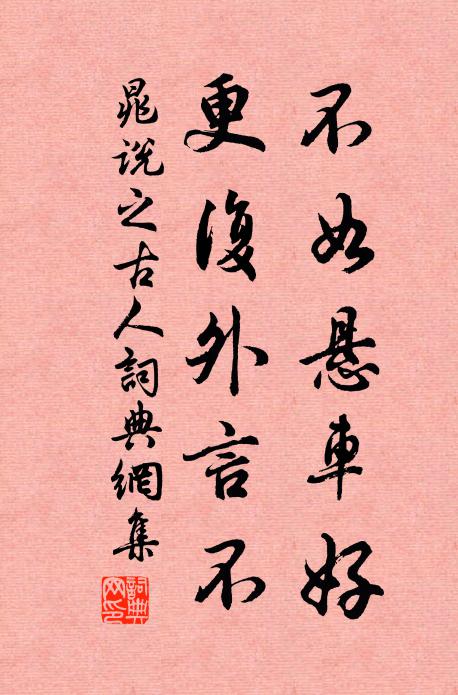 不如悬車好
更復外言不
晁說之古人詞典網集
詞典
网印